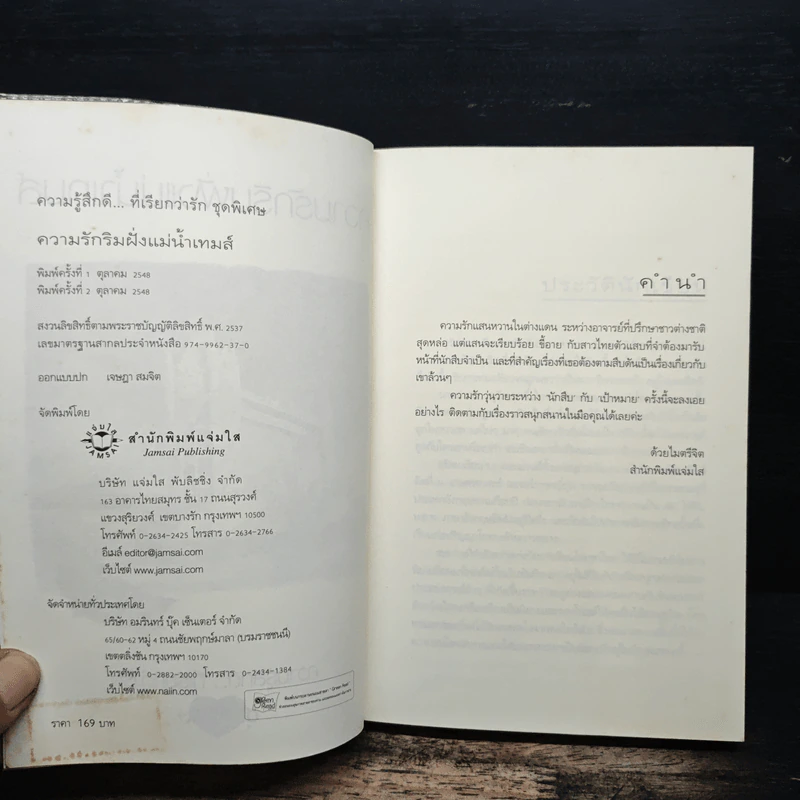 ความรู้สึกดี... ที่เรียกว่ารัก ชุดพิเศษ
ความรักริมฝั่งแม่น้ำเทมส์
พิมพ์ครั้งที่ 1 ตุลาคม 2548
พิมพ์ครั้งที่ 2 ตุลาคม 2548
สงวนลิขสิทธิ์ตามพระราชบัญญัติลิขสิทธิ์ พ.ศ. 2537
เลขมาตรฐานสากลประจำหนังสือ 974-9962-37-0
ออกแบบปก เจษฎา สมจิต
จัดพิมพ์โดย
แจ่มใส
JAMSAI
สำนักพิมพ์แจ่มใส
Jamsai Publishing
บริษัท แจ่มใส พับลิชชิ่ง จำกัด
163 อาคารไทยสมุทร ชั้น 17 ถนนสุรวงศ์
แขวงสุริยวงศ์ เขตบางรัก กรุงเทพฯ 10500
โทรศัพท์ 0-2634-2425 โทรสาร 0-2634-2766
อีเมล์ editor@jamsai.com
เว็บไซต์ www.jamsai.com
จัดจำหน่ายทั่วประเทศโดย
บริษัท อมรินทร์ บุ๊ค เซ็นเตอร์ จำกัด
65/60-62 หมู่ 4 ถนนชัยพฤกษ์มาลา (บรมราชชนนี)
เขตตลิ่งชัน กรุงเทพฯ 10170
โทรศัพท์ 0-2882-2000 โทรสาร 0-2434-1384
เว็บไซต์ www.naiin.com
ราคา 169 บาท
คำนำ
ความรักแสนหวานในต่างแดน ระหว่างอาจารย์ที่ปรึกษาชาวต่างชาติ
สุดหล่อ แต่แสนจะเรียบร้อย ขี้อาย กับสาวไทยตัวแสบที่จำต้องมารับ
หน้าที่นักสืบจำเป็น และที่สำคัญเรื่องที่เธอต้องตามสืบดันเป็นเรื่องเกี่ยวกับ
เขาล้วนๆ
ความรักวุ่นวายระหว่าง 'นักสืบ' กับ 'เป้าหมาย' ครั้งนี้จะลงเอย
อย่างไร ติดตามกับเรื่องราวสนุกสนานในมือคุณได้เลยค่ะ
ด้วยไมตรีจิต
สำนักพิมพ์แจ่มใส